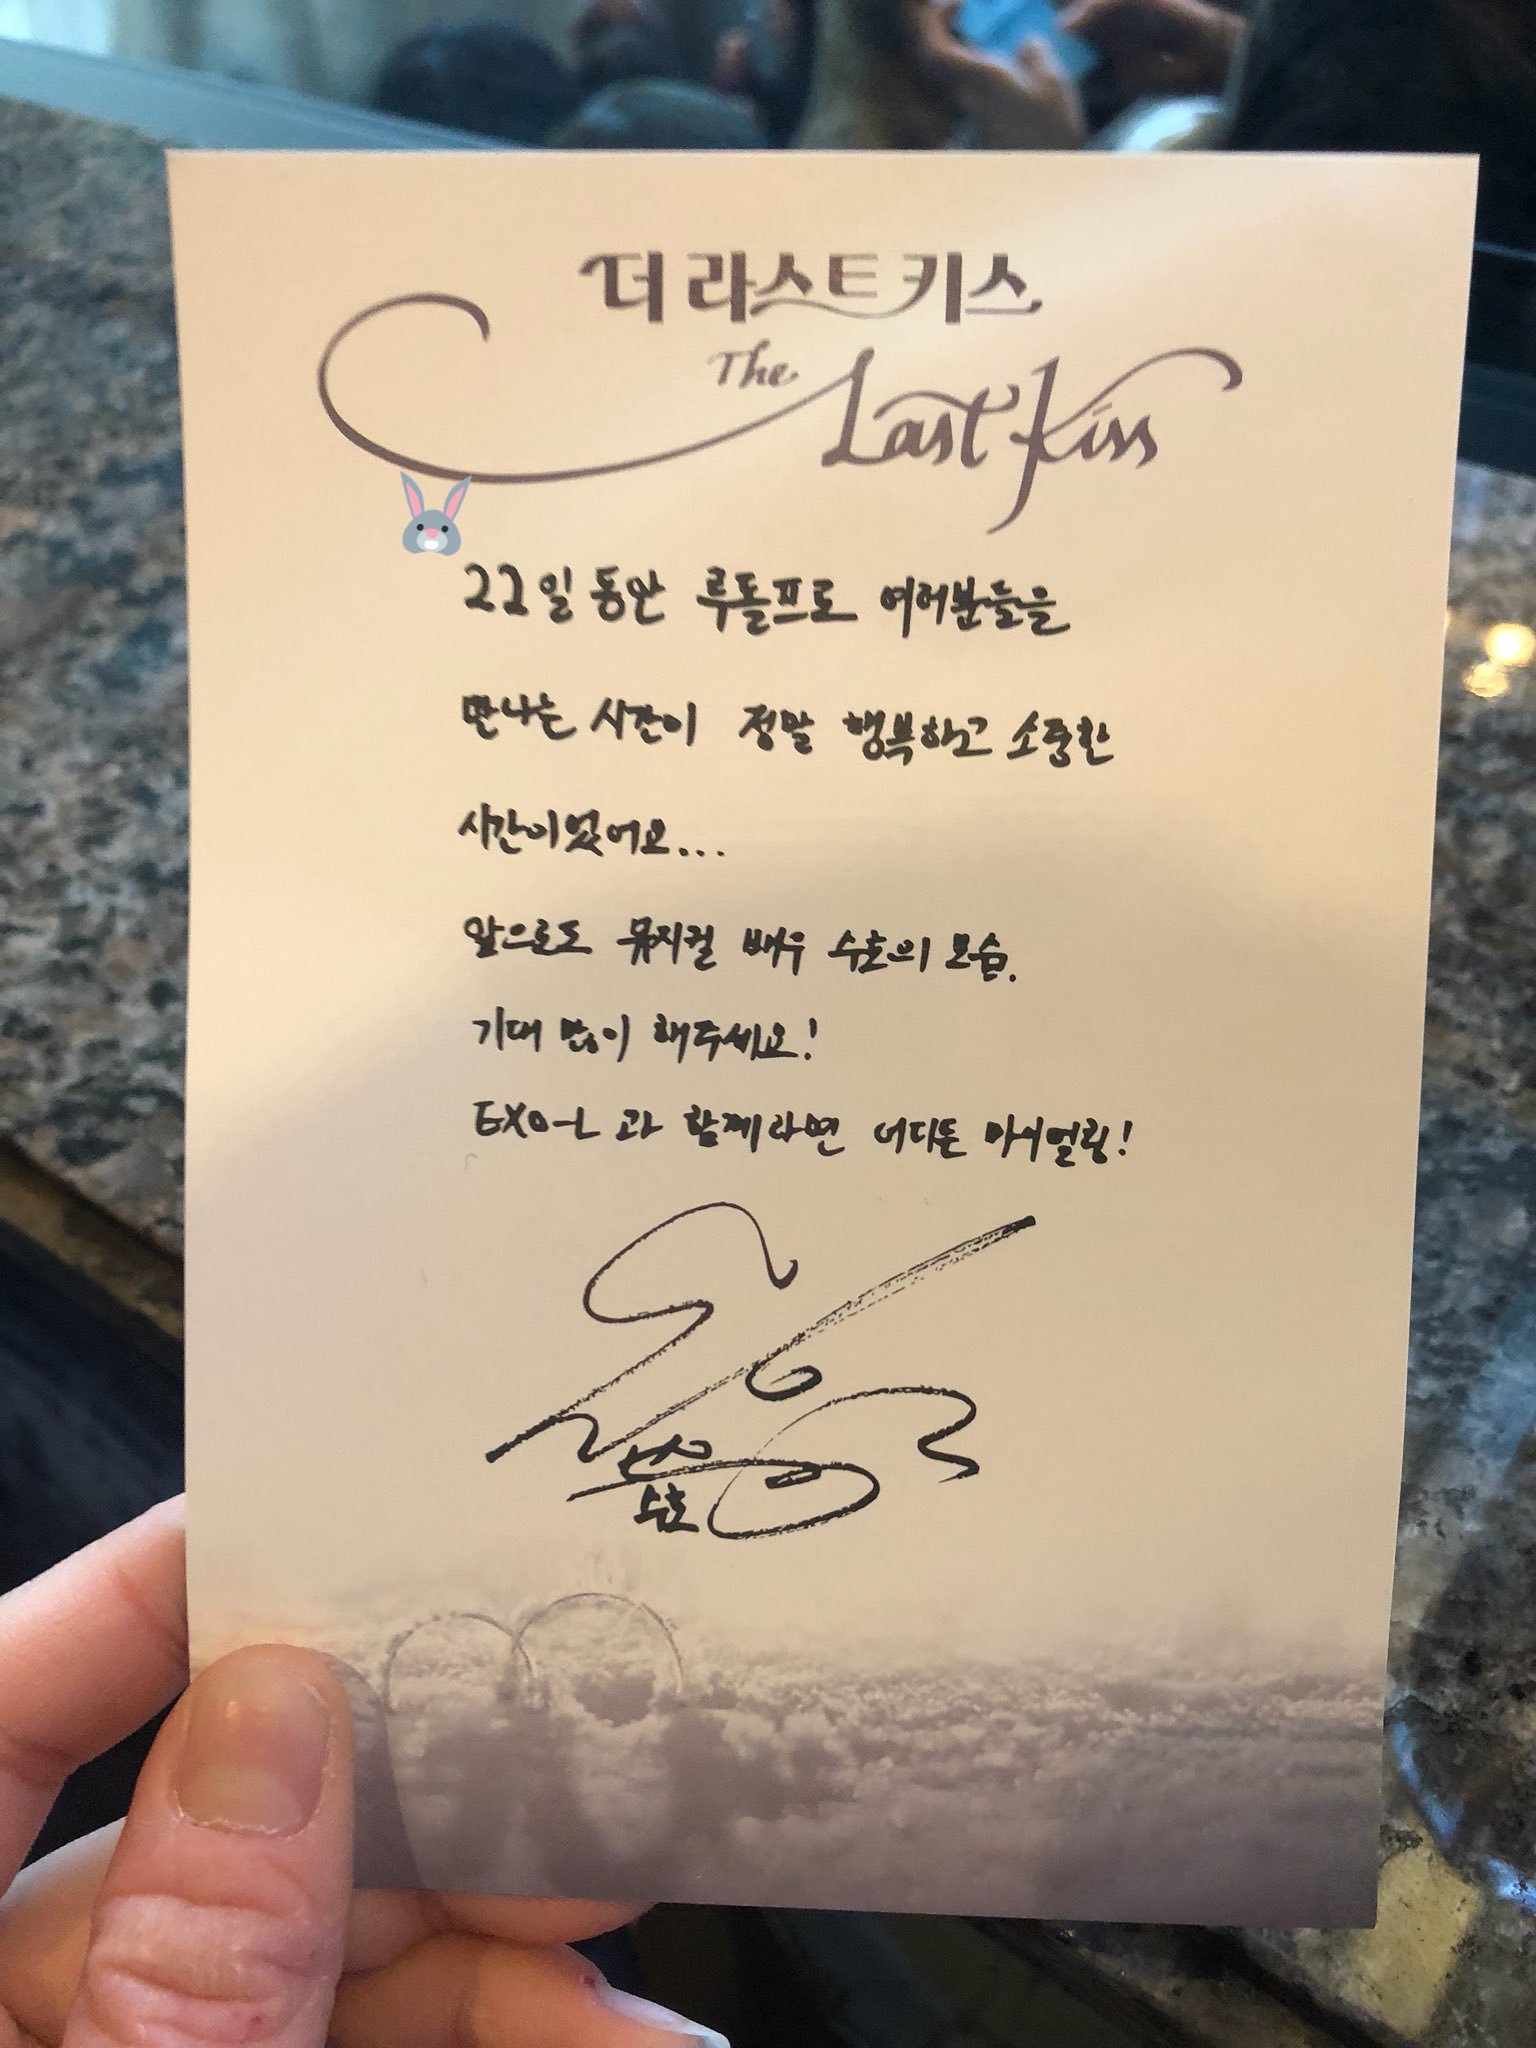 더 라스트 키스
The Last Kiss
22일 동안 루돌프로 여러분들을
만나는 시간이 정말 행복하고 소중한
시간이었어요...
앞으로도 뮤지컬 배우 수호의 모습.
기대 많이 해주세요!
EXO-L과 함께라면 어디든 마이얼링!
수호